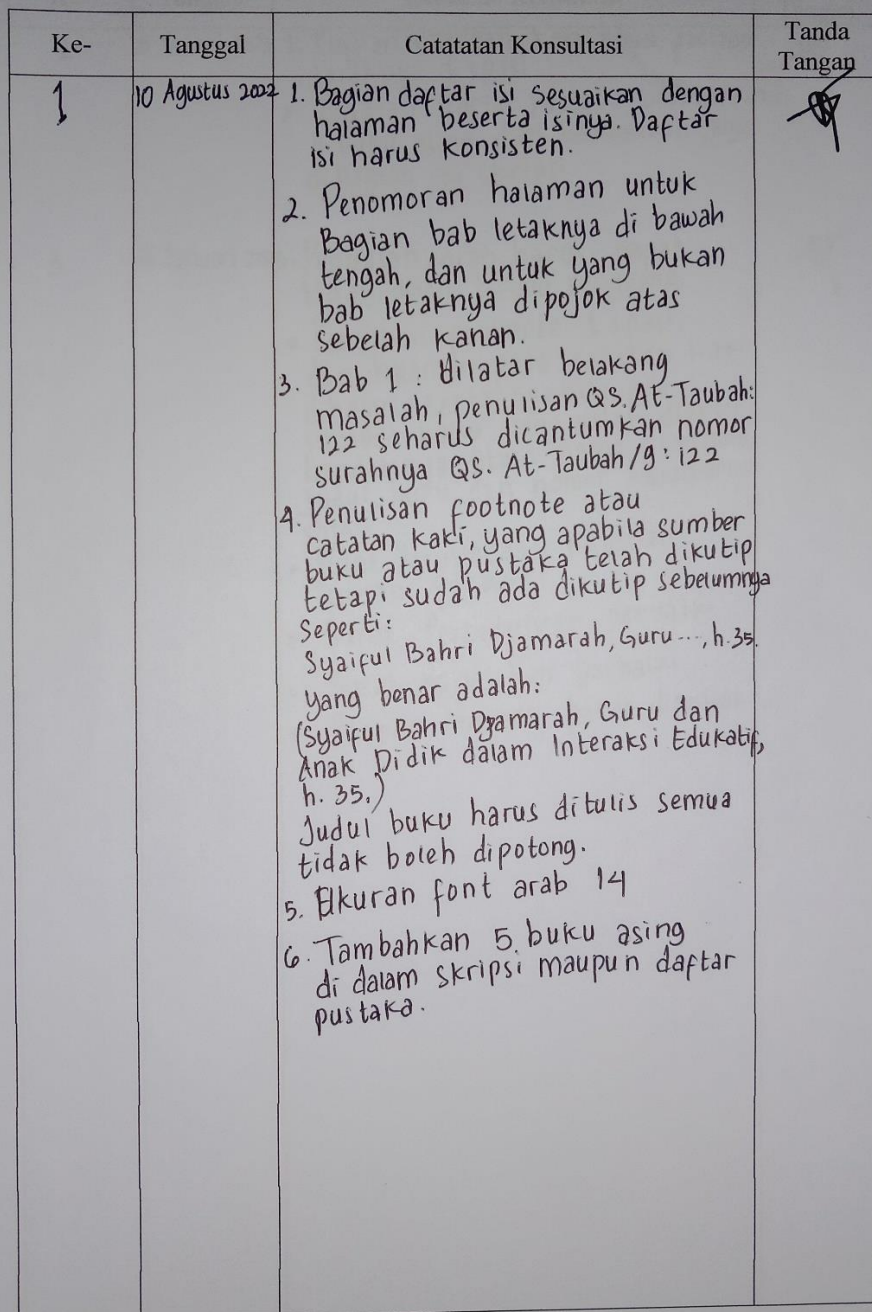 Ke-
Tanggal
Catatatan Konsultasi
Tanda
Tangan
1
10 Agustus 2022
1. Bagian daftar isi sesuaikan dengan
halaman beserta isinya. Daftar
isi harus konsisten.
2. Penomoran halaman untuk
Bagian bab letaknya di bawah
tengah, dan untuk yang bukan
bab letaknya dipojok atas
sebelah kanan.
3. Bab 1 : dilatar belakang
masalah, penulisan QS. At-Taubah:
122 seharus dicantumkan nomor
surahnya QS. At-Taubah/9:122
4. Penulisan footnote atau
catatan kaki, yang apabila sumber
buku atau pustaka telah dikutip
tetapi sudah ada dikutip sebelumnya
Seperti:
Syaiful Bahri Djamarah, Guru..., h.35.
yang benar adalah:
(Syaiful Bahri Djamarah, Guru dan
Anak Didik dalam Interaksi Edukatif,
h. 35.)
Judul buku harus ditulis semua
tidak boleh dipotong.
5. Ukuran font arab 14
6. Tambahkan 5 buku asing
di dalam skripsi maupun daftar
pustaka.